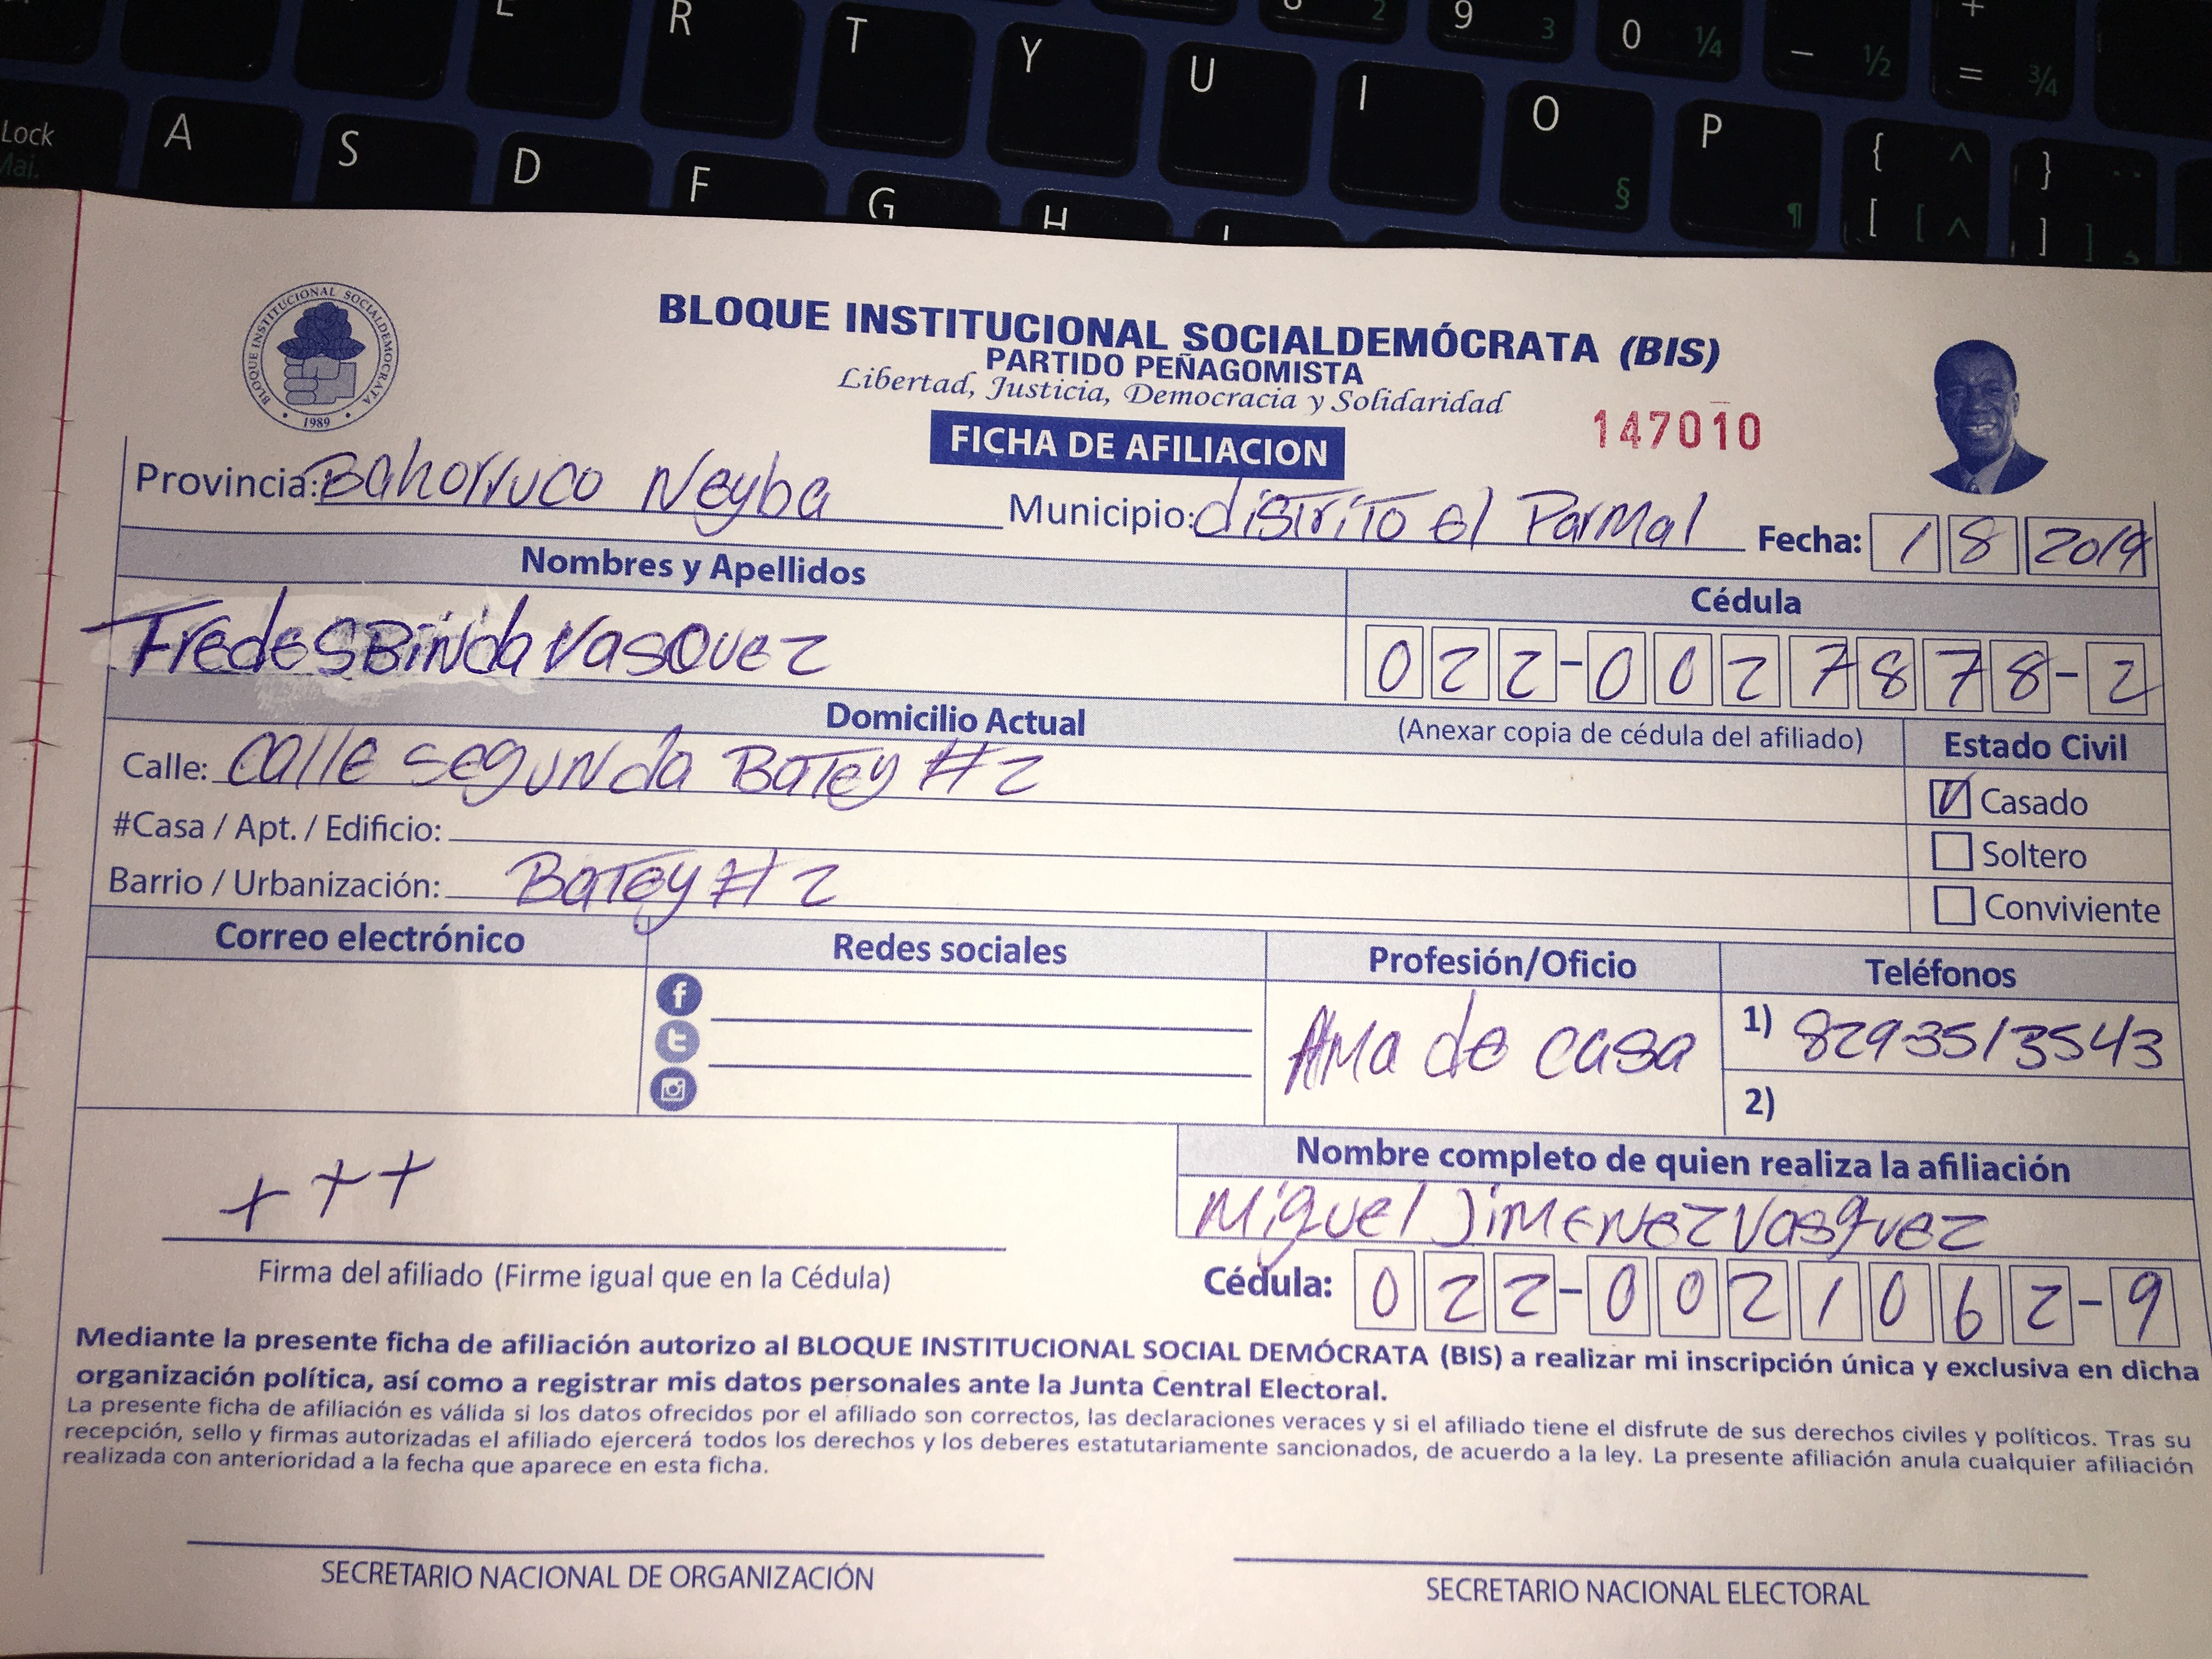 E R T Y U I O P
2 9 3 0 ¼ - ½ + = ¾
Lock A S D F G H
§ ¶ { ^ [ [ ^ } ] ]
BLOQUE INSTITUCIONAL SOCIALDEMOCRATA
1989
BLOQUE INSTITUCIONAL SOCIALDEMÓCRATA (BIS)
PARTIDO PEÑAGOMISTA
Libertad, Justicia, Democracia y Solidaridad
FICHA DE AFILIACION
147010
Provincia: Bahorruco Neyba Municipio: distrito el Parmal Fecha: 1 8 2019
Nombres y Apellidos Cédula
FredesBinda Vasquez 022-0027878-2
Domicilio Actual (Anexar copia de cédula del afiliado) Estado Civil
Calle: calle segunda Batey #2 Casado
#Casa / Apt. / Edificio: Soltero
Barrio / Urbanización: Batey #2 Conviviente
Correo electrónico Redes sociales Profesión/Oficio Teléfonos
f
t
Ama de casa
1) 8293513543
2)
+ + +
Firma del afiliado (Firme igual que en la Cédula)
Nombre completo de quien realiza la afiliación
Miguel Jimenez Vasquez
Cédula: 022-0021062-9
Mediante la presente ficha de afiliación autorizo al BLOQUE INSTITUCIONAL SOCIAL DEMÓCRATA (BIS) a realizar mi inscripción única y exclusiva en dicha
organización política, así como a registrar mis datos personales ante la Junta Central Electoral.
La presente ficha de afiliación es válida si los datos ofrecidos por el afiliado son correctos, las declaraciones veraces y si el afiliado tiene el disfrute de sus derechos civiles y políticos. Tras su
recepción, sello y firmas autorizadas el afiliado ejercerá todos los derechos y los deberes estatutariamente sancionados, de acuerdo a la ley. La presente afiliación anula cualquier afiliación
realizada con anterioridad a la fecha que aparece en esta ficha.
SECRETARIO NACIONAL DE ORGANIZACIÓN
SECRETARIO NACIONAL ELECTORAL